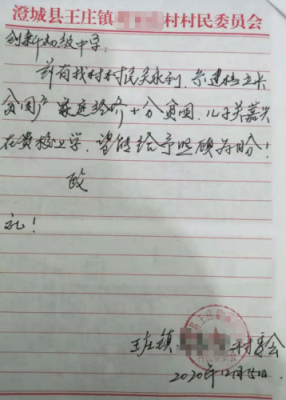 澄城县王庄镇 村村民委员会
创新初级中学:
兹有我村村民关永利,系建档立卡
贫困户家庭经济十分贫困,儿子关嘉兴
在贵校上学,望能给予照顾为盼!
致
礼!
王庄镇 村委会
2020年12月15日